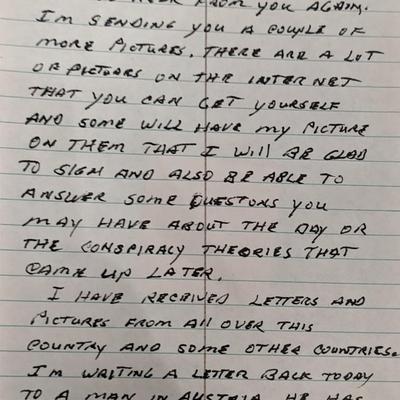 HEAR FROM YOU AGAIN.
I'M SENDING YOU A COUPLE OF
MORE PICTURES. THERE ARE A LOT
OF PICTUORS ON THE INTERNET
THAT YOU CAN GET YOURSELF
AND SOME WILL HAVE MY PICTURE
ON THEM THAT I WILL BE GLAD
TO SIGN AND ALSO BE ABLE TO
ANSWER SOME QUESTONS YOU
MAY HAVE ABOUT THE DAY OR
THE CONSPIRACY THEORIES THAT
CAME UP LATER.
I HAVE RECEIVED LETTERS AND
PICTURES FROM All OVER THIS
COUNTRY AND SOME OTHER COUNTRIES.
I'M WRITING A LETTER BACK TODAY
TO A MAN IN AUSTRIA HE HAS